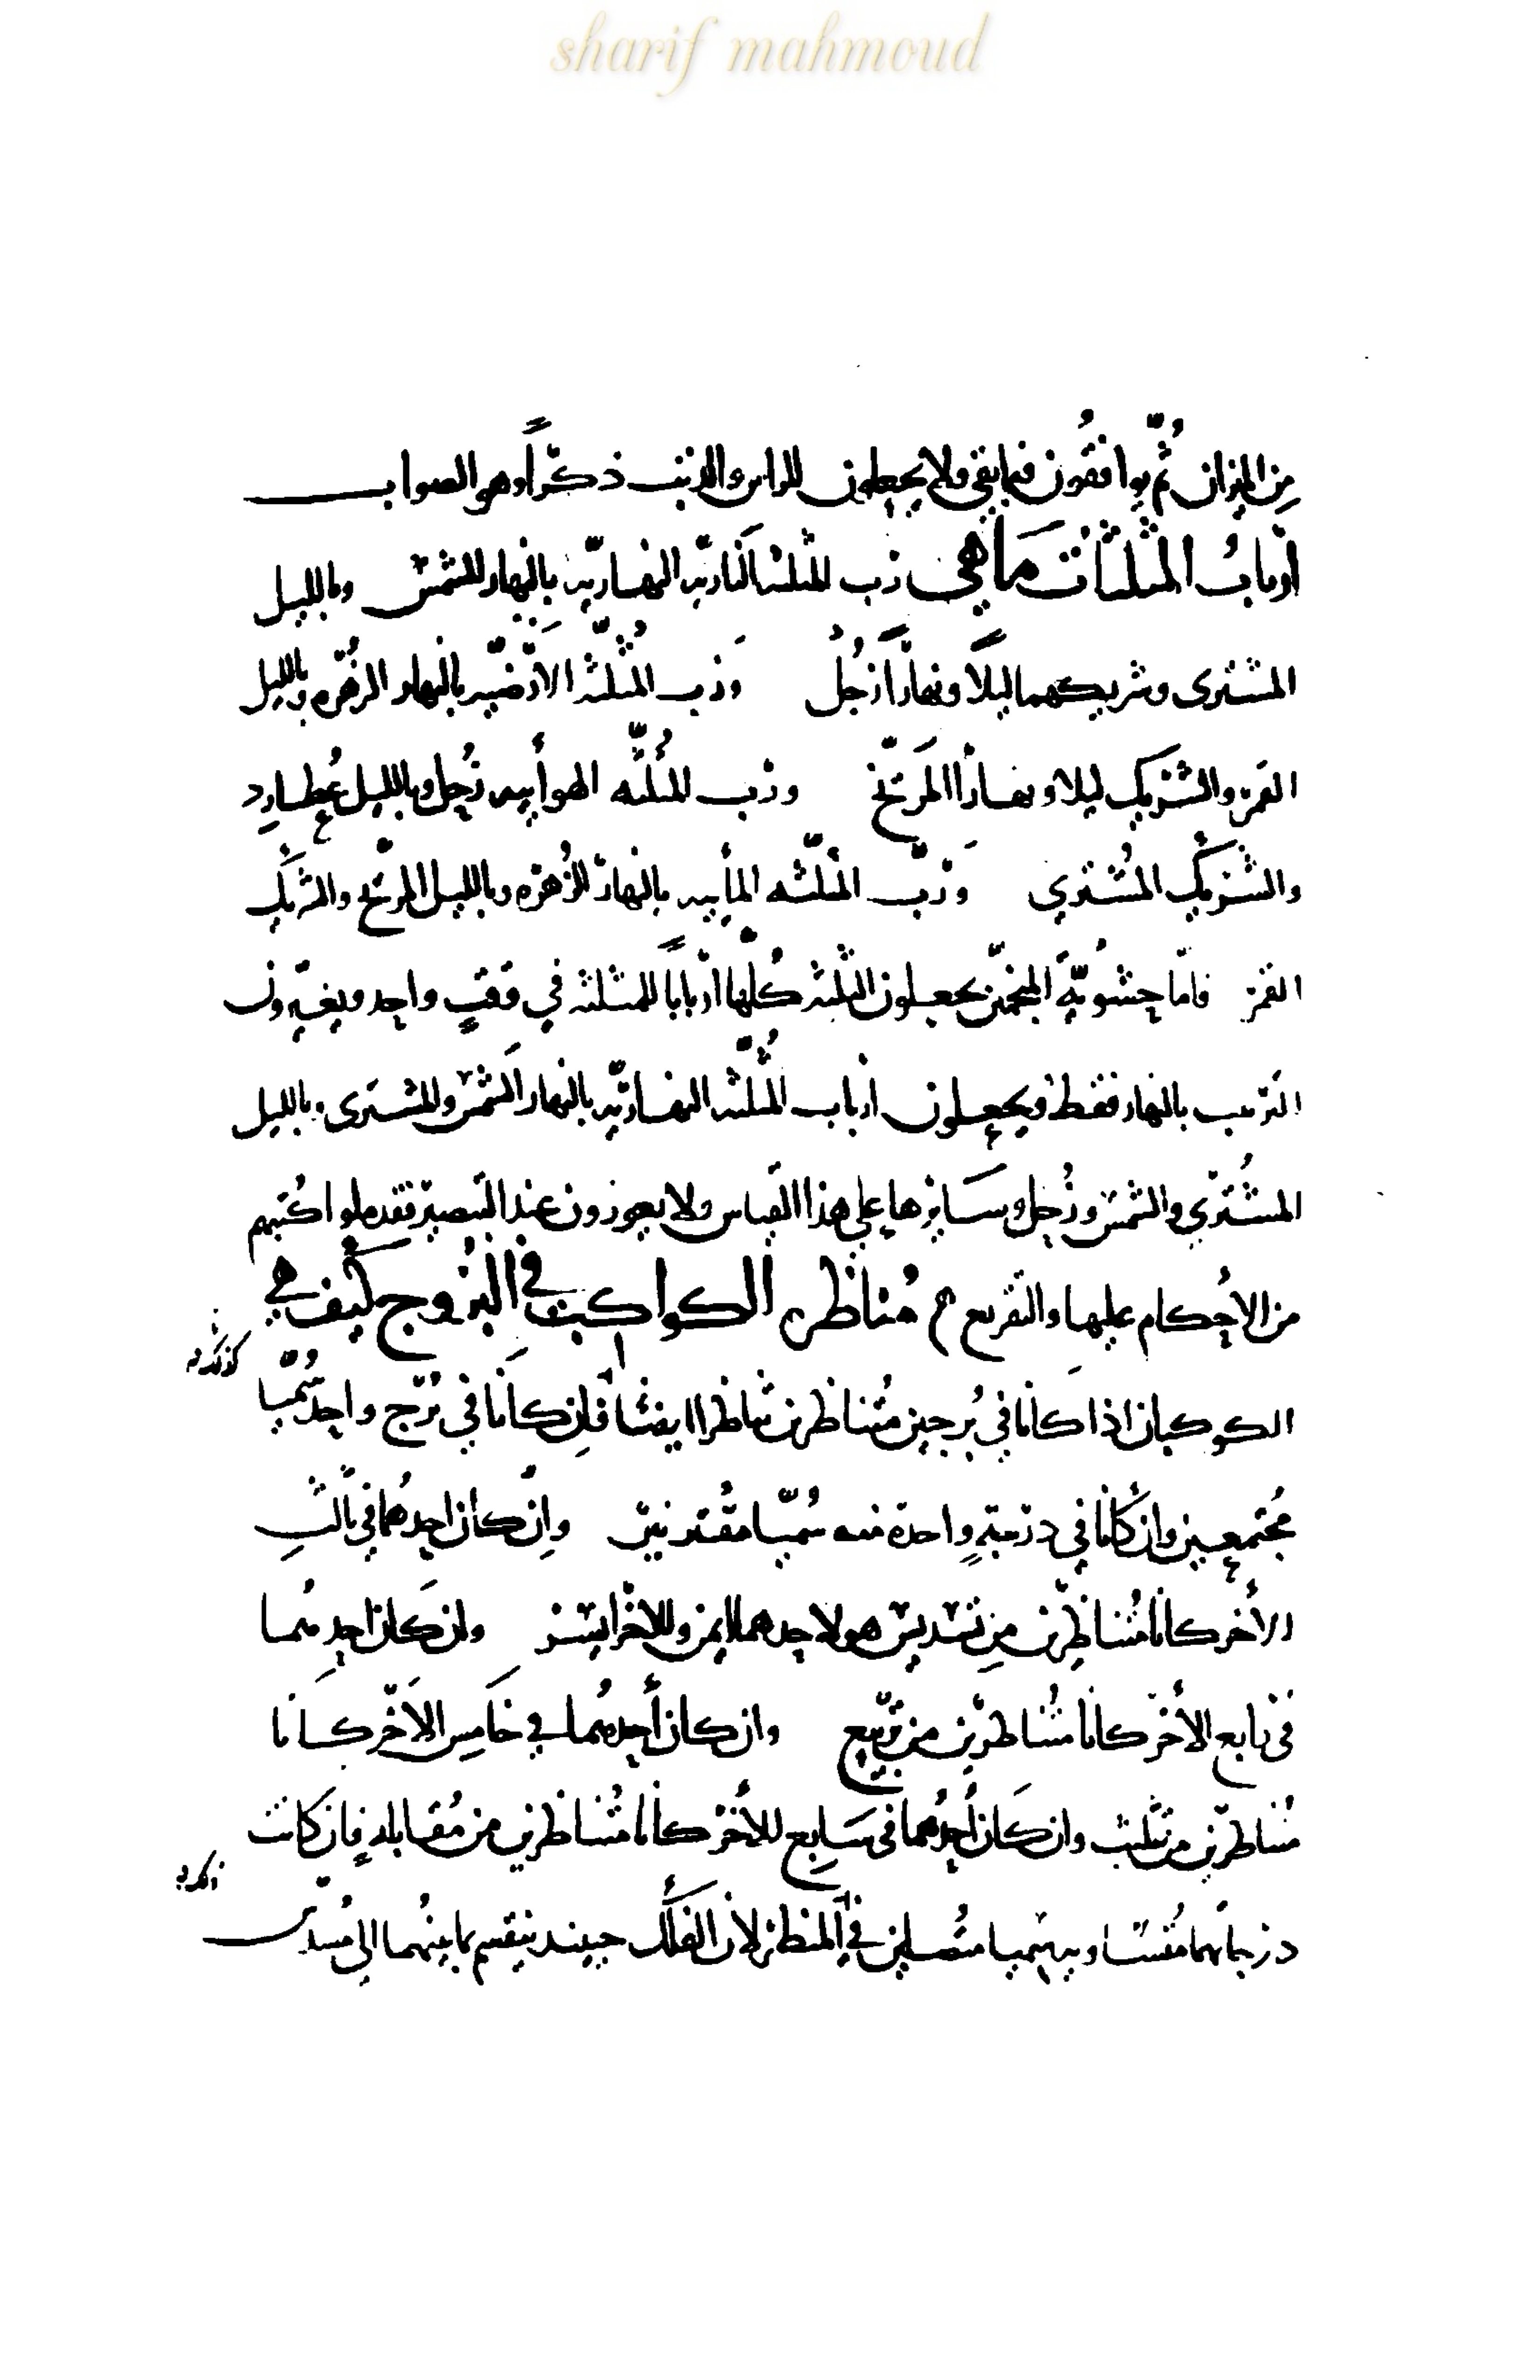 sharif mahmoud
مِن الميزان ثُمّ يوافقُون فيما بقي ولا يجعلون للراس والذنب ذكراً وهو الصواب
أرباب المثلثات ما هي رب المثلثه الناريّه النهاريّه بالنهار الشمس وبالليل
المشترى وشريكهما ليلاً ونهاراً زُحل وَرب المُثلّثه الارضيّه بالنهار الزهره وبالليل
القمر والشَريك ليلا ونهارا المَريّخ ورب المُثلّثه الهوأييه زُحل وبالليل عُطارد
والشريك المُشتري وَربّ المثلّثه المأييه بالنهار الزُهره وبالليل المريّخ والشريك
القمر فامّا حشويّةُ المنجّمين يجعلون الثلثه كُلّها ارباباً للمثلثه في وَقتٍ واحد ويغيّرون
الترتيب بالنهار فقط فيجعلون ارباب المُثلّثه الناريّه بالنهار الشَمس والمشترى وبالليل
المشتُري والشمس وزُحل وسَاير ها على هذا القياس ولا يعوزون عند التبصير فقد ملوا كُتبهم
من الأحكام عليها والتفريع مُناظره الكواكب في البُروج كيف هي
الكوكبان اذا كانا في بُرجين مُتناظرين تناظرا ايضًا فاِن كانا في بُرج واحد سُمّيا
مُجتمعين وان كانا في درجةٍ واحدة منه سُمّيا مقُترنين واِن كان احدهُما في ثالثِ
الأخر كانا مُتناظرين مِن تسديس هو لاحدهما ايمن وللاخر ايسر وان كان احدهُما
فى رابع الأخر كانا مُتناظرين من تربيع وان كان أحدهُما في خامِس الاَخر كانا
مُتناظرين من تثليث وان كان أحدهُما فى سَابع الأخر كانا مُتناظرين من مُقابله فان كانت
درجاتهما مُتسّاويه سُمّيا متُصلين في المنظر لأن الفلك حينيد ينقسم بما بينهُما الى مُسدّس